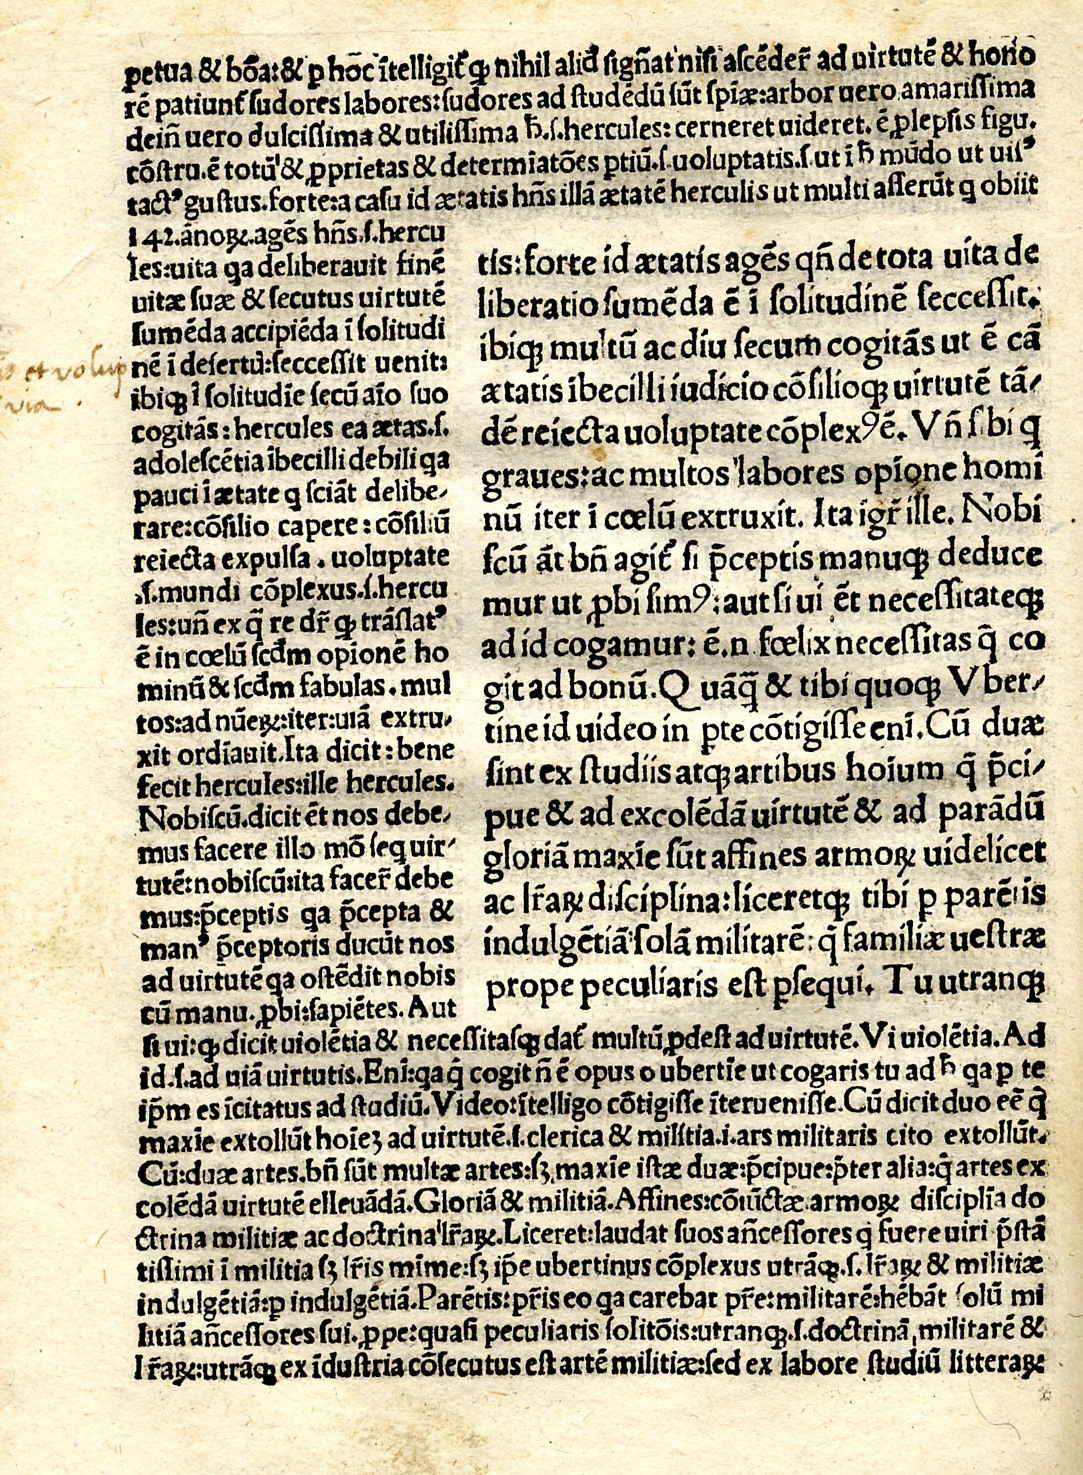 ꝑetua & bõa: & ꝑ hõc ĩtelligit᷑ ꝙ nihil aliđ sigñat nisi ascẽder̃ ad uirtutẽ & hono
rẽ patiunt᷑ sudores labores: sudores ad studẽdũ sũt spĩæ: arbor uero amarissima
deiñ uero dulcissima & utilissima h̃.ſ.hercules: cerneret uideret. ẽ ꝓlepsis figu.
cõstru. ẽ totũ & ꝓprietas & determĩatões ptiũ.ſ.uoluptatis.ſ.ut ĩ h̃ mũdo ut uisꝰ
tactꝰ gustus. forte: a casu id ætatis hñs illã ætatẽ herculis ut multi asserũt q obiit
142. ãnoꝝ. agẽs hñs.ſ.hercu
les: uita qa deliberauit finẽ
uitæ suæ & secutus uirtutẽ
sumẽda accipiẽda ĩ solitudi
nẽ ĩ desertũ: seccessit uenit:
ibiqꝫ ĩ solitudĩe secũ aĩo suo
cogitãs: hercules ea ætas.ſ.
adolescẽtia ĩbecilli debili qa
pauci ĩ ætate q sciãt delibe-
rare: cõsilio capere: cõsiliũ
reiecta expulsa. uoluptate
.ſ.mundi cõplexus.ſ.hercu
les: uñ ex q̃ re dr̃ ꝙ trãslatꝰ
ẽ in cœlũ scđm opionẽ ho
minũ & scđm fabulas. mul
tos: ad nũeꝝ: iter: uiã extru-
xit ordĩauit. Ita dicit: bene
fecit hercules: ille hercules.
Nobiscũ. dicit ẽt nos debe-
mus facere illo mõ seq uir-
tutẽ: nobiscũ: ita facer̃ debe
mus: p̃ceptis qa p̃cepta &
manꝰ p̃ceptoris ducũt nos
ad uirtutẽ qa ostẽdit nobis
cũ manu. ꝓbi: sapiẽtes. Aut
tis: forte id ætatis agẽs qñ de tota uita de
liberatio sumẽda ẽ ĩ solitudinẽ seccessit.
ibiqꝫ multũ ac diu secum cogitãs ut ẽ cã
ætatis ĩbecilli iudicio cõsilioqꝫ uirtutẽ tã-
dẽ reiecta uoluptate cõplexꝰ ẽ. Vñ sibi q
graues: ac multos labores opĩone homi
nũ iter ĩ cœlũ extruxit. Ita igr̃ ille. Nobi
scũ ãt bñ agit᷑ si p̃ceptis manuqꝫ deduce
mur ut ꝓbi simꝰ: aut si ui ẽt necessitateqꝫ
ad id cogamur: ẽ.n fœlix necessitas q̃ co
git ad bonũ. Quãq̃ & tibi quoqꝫ Vber-
tine id uideo in ꝑte cõtigisse enĩ. Cũ duæ
sint ex studiis atqꝫ artibus hoĩum q̃ p̃ci-
pue & ad excolẽdã uirtutẽ & ad parãdũ
gloriã maxĩe sũt affines armoꝝ uidelicet
ac lr̃aꝝ disciplina: liceretqꝫ tibi ꝑ parẽtis
indulgẽtiã solã militarẽ: q̃ familiæ uestræ
prope peculiaris est ꝑsequi. Tu utranqꝫ
si ui: ꝙ dicit uiolẽtia & necessitasqꝫ dat᷑ multũ ꝓdest ad uirtutẽ. Vi uiolẽtia. Ad
id.ſ.ad uiã uirtutis. Enĩ: qa q̃ cogit ñ ẽ opus o ubertĩe ut cogaris tu ad h̃ qa ꝑ te
ip̃m es ĩcitatus ad studiũ. Video: ĩtelligo cõtigisse ĩteruenisse. Cũ dicit duo eẽ q̃
maxĩe extollũt hoĩeꝫ ad uirtutẽ.ſ.clerica & militia.i.ars militaris cito extollũt.
Cũ: duæ artes. bñ sũt multæ artes: sꝫ maxĩe istæ duæ: p̃cipue: p̃ter alia: q̃ artes ex
colẽdã uirtutẽ elleuãdã. Gloriã & militiã. Affines: cõiũctæ. armoꝝ disciplĩa do
ctrina militiæ ac doctrina lr̃aꝝ. Liceret: laudat suos añcessores q̃ fuere uiri p̃stã
tissimi ĩ militia sꝫ lr̃is mĩme: sꝫ ip̃e ubertinus cõplexus utrãqꝫ.ſ.lr̃aꝝ & militiæ
indulgẽtiã: ꝑ indulgẽtiã. Parẽtis: pr̃is eo qa carebat pr̃e: militarẽ: hẽbãt solũ mi
litiã añcessores sui. ꝓpe: quasi peculiaris solitõis: utranqꝫ.ſ.doctrinã militarẽ &
lr̃aꝝ: utrãqꝫ ex ĩdustria cõsecutus est artẽ militiæ: sed ex labore studiũ litteraꝝ
et volup
via.